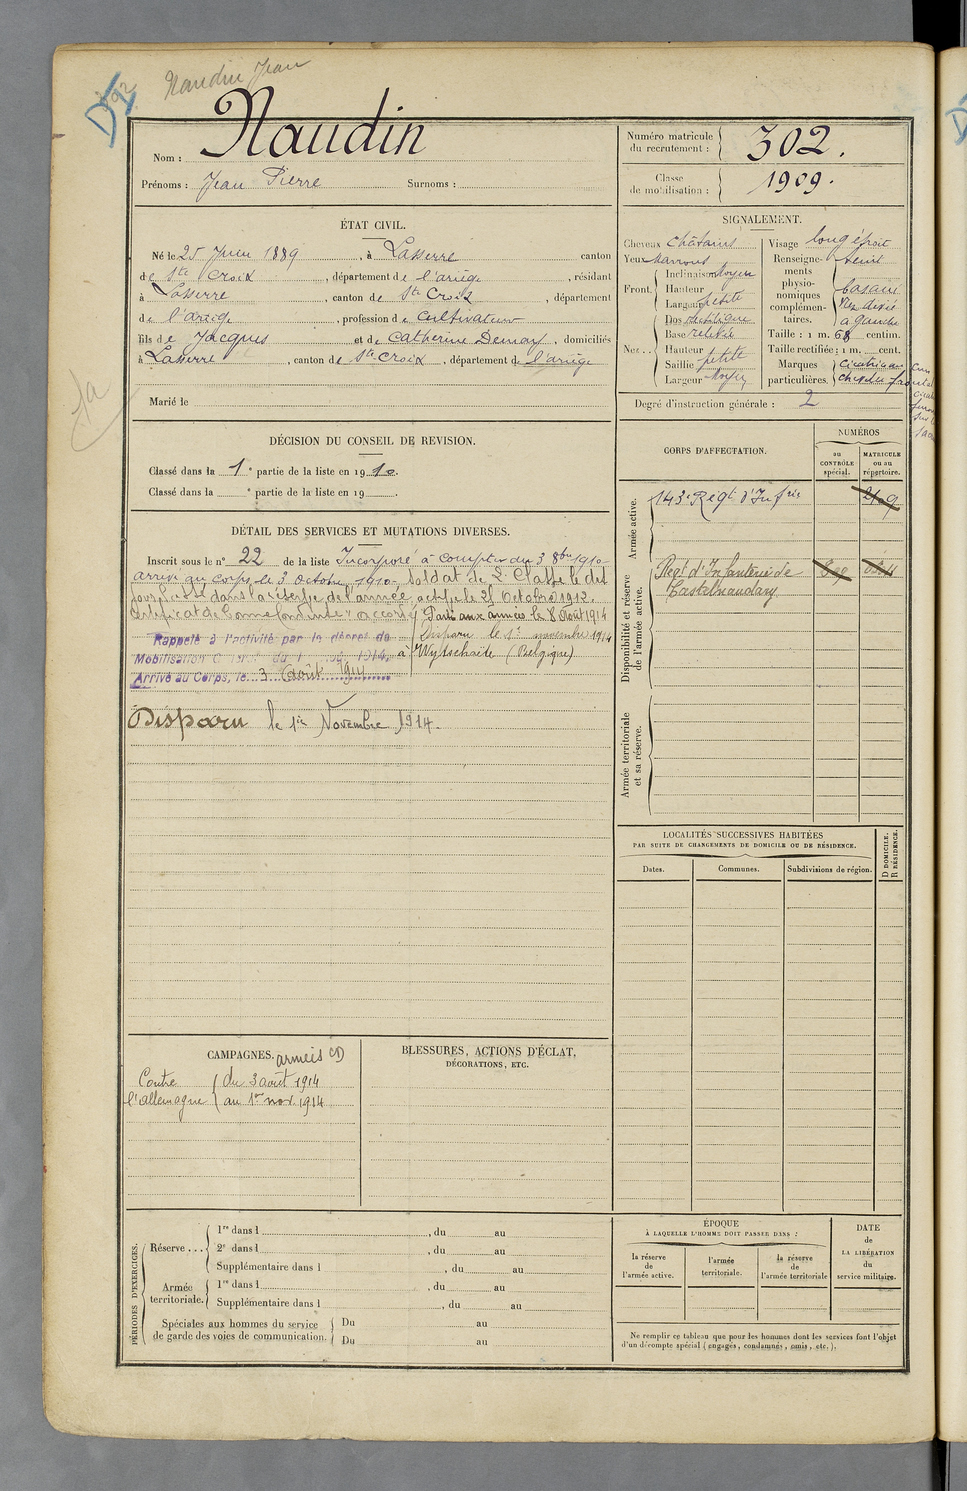 Naudin Jean
D 92
Naudin
Nom :
Prénoms : Jean Pierre Surnoms :
Numéro matricule du recrutement : 302.
Classe de mobilisation : 1909.
ÉTAT CIVIL.
Né le 25 Juin 1889, à Lasserre canton
de Ste Croix, département de l'ariège, résidant
à Lasserre, canton de Ste Croix, département
de l'ariège, profession de Cultivateur
fils de Jacques et de Catherine, domiciliés
à Lasserre, canton de Ste Croix, département de l'ariège
Marié le
SIGNALEMENT.
Cheveux Châtains
Yeux Marrons
Front. Inclinaison Moyen
Hauteur
Largeur petite
Nez. Dos
Base relevée
Hauteur
Saillie petite
Largeur Moyen
Visage long étroit
Renseignements physionomiques complémentaires.
basané
Nez dévié
a gauche
Taille : 1 m. 68 centim.
Taille rectifiée : 1 m. cent.
Marques particulières.
Degré d'instruction générale : 2
DÉCISION DU CONSEIL DE REVISION.
Classé dans la 1e partie de la liste en 1910.
Classé dans la e partie de la liste en 19 .
DÉTAIL DES SERVICES ET MUTATIONS DIVERSES.
Inscrit sous le n° 22 de la liste Incorporé à compter du 3 8bre 1910
arrivé au corps le 3 Octobre 1910. Soldat de 2e Classe le dit
jour. Passé dans la réserve de l'armée active le 25 Octobre 1912.
Certificat de bonne conduite accordé
Parti aux armées le 8 Août 1914
Rappelé à l'activité par le décret de
Mobilisation Générale du 1 1914,
Arrivé au Corps, le 3 Août 1914
Disparu le 1er novembre 1914
à Wytschaete (Belgique)
Disparu le 1er Novembre 1914.
CORPS D'AFFECTATION.
NUMÉROS
au CONTRÔLE spécial.
MATRICULE ou au répertoire.
Armée active.
143e Régt d'Infrie
Disponibilité et réserve de l'armée active.
Régt d'Infanterie de
Castelnaudary
Armée territoriale et sa réserve.
LOCALITÉS SUCCESSIVES HABITÉES
PAR SUITE DE CHANGEMENTS DE DOMICILE OU DE RÉSIDENCE.
Dates.
Communes.
Subdivisions de région.
D DOMICILE.
R RÉSIDENCE.
CAMPAGNES. armées CD
Contre l'allemagne du 3 août 1914
au 1er nov. 1914
BLESSURES, ACTIONS D'ÉCLAT,
DÉCORATIONS, ETC.
PÉRIODES D'EXERCICES.
Réserve ...
1re dans l , du au
2e dans l , du au
Supplémentaire dans l , du au
Armée territoriale.
1re dans l , du au
Supplémentaire dans l , du au
Spéciales aux hommes du service
de garde des voies de communication.
Du au
Du au
ÉPOQUE
À LAQUELLE L'HOMME DOIT PASSER DANS :
la réserve de l'armée active.
l'armée territoriale.
la réserve de l'armée territoriale
DATE
de
LA LIBÉRATION
du
service militaire.
Ne remplir ce tableau que pour les hommes dont les services font l'objet
d'un décompte spécial (engagés, condamnés, omis, etc.).